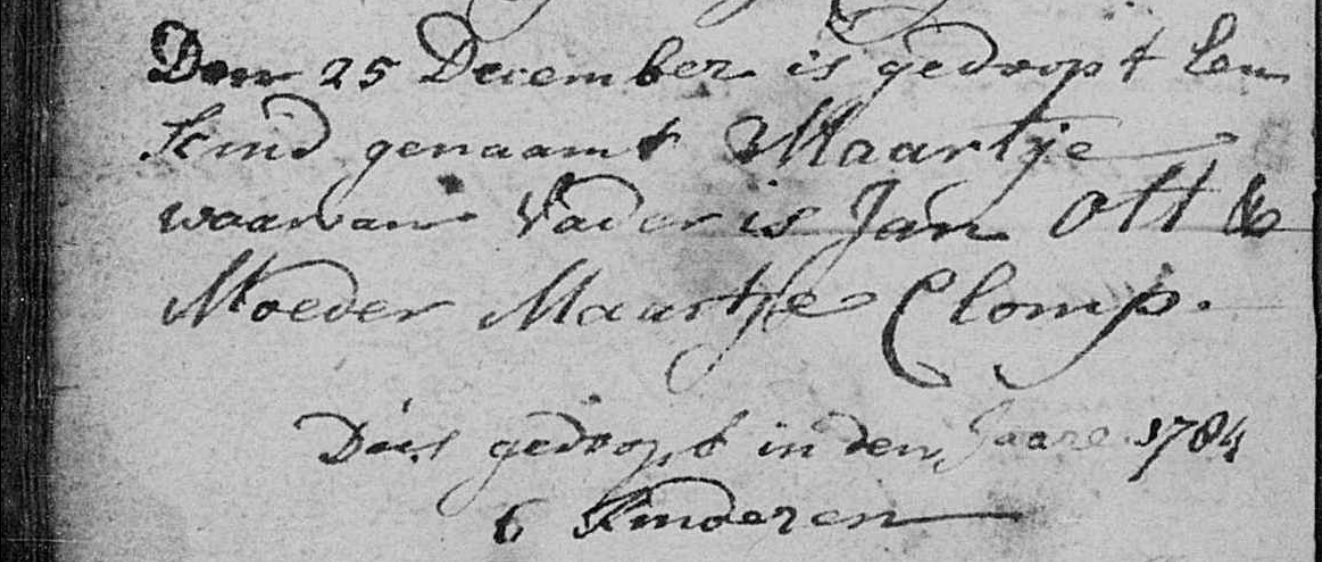 Den 25 December is gedoopt Een
Kind genaamt Maartje
waarvan Vader is Jan Ott &
Moeder Maartje Clomp.
Dus gedoopt in den Jaare 1784
6 Kinderen